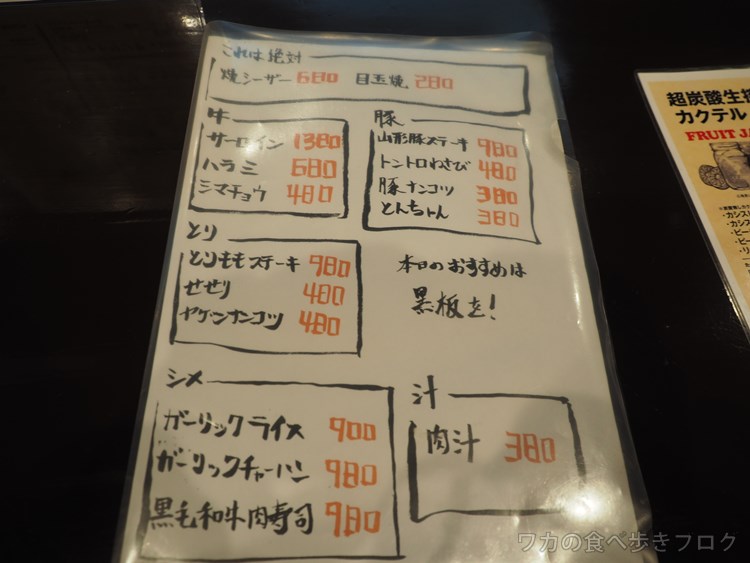 これは絶対
焼シーザー 680 目玉焼 280
牛
サーロイン 1380
ハラミ 680
シマチョウ 480
豚
山形豚ステーキ 980
トントロわさび 480
豚ナンコツ 380
とんちゃん 380
とり
とりももステーキ 980
せせり 480
ヤゲンナンコツ 480
本日のおすすめは
黒板を!
シメ
ガーリックライス 900
ガーリックチャーハン 980
黒毛和牛肉寿司 980
汁
肉汁 380
超炭酸生搾
カクテル
FRUIT JA
・カシス
・カシス
・ビー
・ビー
・リ
ワカの食べ歩きブログ